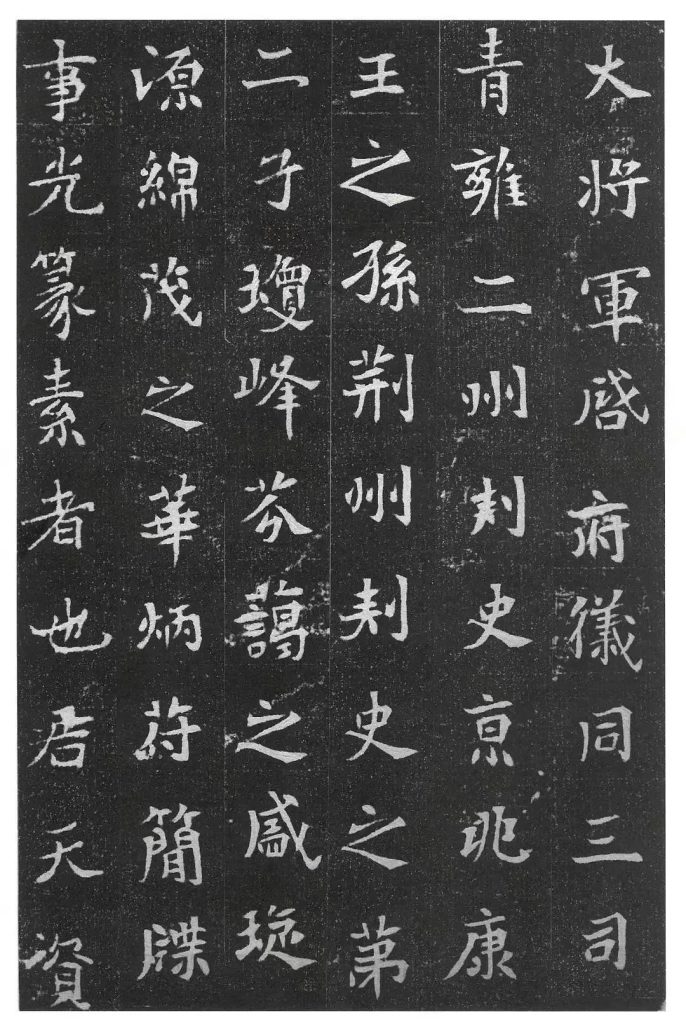 大將軍啓府儀同三司
青雍二州刾史京兆康
王之孫荆州刾史之第
二子瓊峰芬藹之盛琁
源綿茂之華炳荮簡牒
事光篆素者也君天資